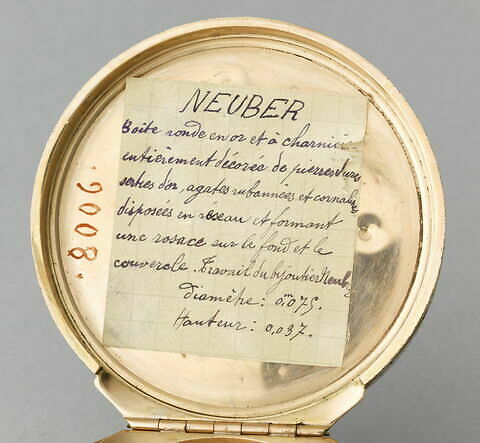 NEUBER
Boîte ronde en or et à charnière
entièrement décorée de pierres dures
serties d'or, agates rubannées et cornalines
disposées en réseau et formant
une rosace sur le fond et le
couvercle. Travail du bijoutier Neuber
diamètre : 0,m075.
Hauteur : 0,037.
8006.